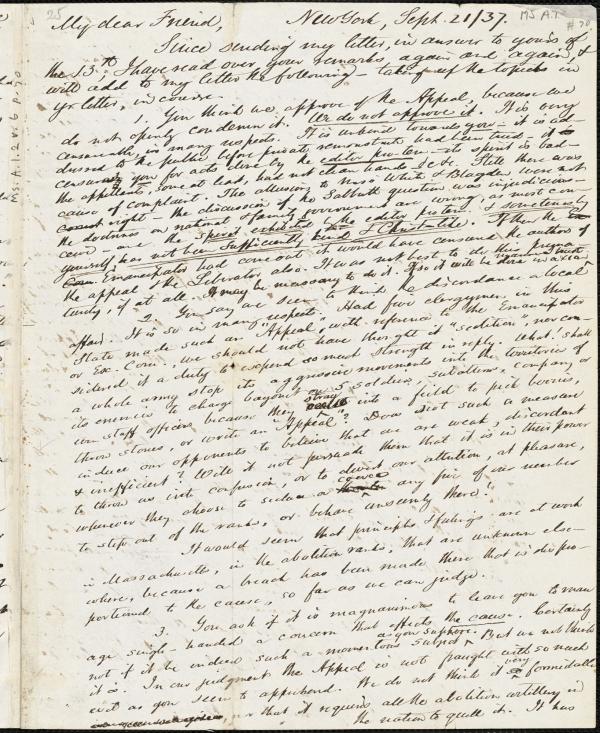 25
MS A.1.2 v.6 p.70
My dear Friend, New York, Sept. 21/37.
Since sending my letter, in answer to yours of
the 13th I have read over your remarks, again and again, &
will add to my letter the following — taking up the topics in
yr letter, in course.
1. You think we approve of the Appeal, because we
do not openly condemn it. We do not approve it. It is very
censurable, in many respects. It is unkind towards you — it is ad-
dressed to the public before private remonstrance had been tried — it
censures you for acts done by the editor pro tem — its spirit is bad —
the appellants, some at least, had not clean hands &c &c. Still there was
cause of complaint. The allusions to Messrs White & Blagden were not
right — the discussion of the Sabbath question was injudicious —
the doctrines on national & family governments are wrong, as most con-
ceive — and the spirit exhibited by the editor protem. & sometimes by
yourself, has not been sufficiently kind & Christ-like. If then the
Emancipator had come out it would have censured the authors of
the appeal & the Liberator also. It was not best to do this prema-
turely, if at all. It may be necessary to do it. If so it will be done in a
affair.
2. You say we seem to think the discordance a local
It is so in many respects. Had five clergymen in this
State made such an "Appeal", with reference to the Emancipator
or Ex. Com., we should not have thought it "sedition", nor con-
sidered it a duty to expend so much strength in reply. What! shall
a whole army stop its aggressive movements into the territories of
its enemies to charge bayonets on 5 soldiers, subalterns, company or
even staff officers because they stray into a field to pick berries,
throw stones, or write an "Appeal"? Does not such a measure
induce our opponents to believe that we are weak, discordant
& inefficient? Will it not persuade them that it is in their power
to throw us into confusion, or to divert our attention, at pleasure,
whenever they choose to seduce or coerce any five of our number
to step out of the ranks, or behave unseemly there?
It would seem that principles & feelings are at work
in Massachusetts, in the abolition ranks, that are unknown else-
where, because a breach has been made there that is dispro-
portioned to the cause, so far as we can judge.
3. You ask if it is magnanimous to leave you to man-
age single-handed a concern that affects the cause. Certainly
not if it be indeed such a momentous subject as you suppose. But we not think
it is. In our judgment the Appeal is not fraught with so much
evil as you seem to apprehend. We do not think it very formidable
nor that it requires all the abolition artillery in
the nation to quell it. It has